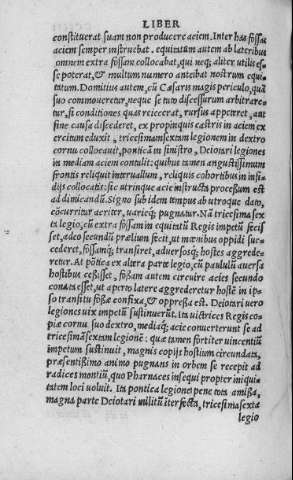 LIBER
constituerat suam non producere aciem. Inter has fossas
aciem semper instruebat. equitatum autem ab lateribus
omnem extra fossam collocabat, qui neq; aliter utilis es=
se poterat, & multum numero anteibat nostrum equi=
tatum. Domitius autem, cũ Cæsaris magis periculo, quã
suo commoueretur, neque se tuto discessurum arbitrare=
tur, si conditiones quas reiecerat, rursus appeteret, aut
sine causa discederet, ex propinquis castris in aciem ex
ercitum eduxit, tricesimamsextam legionem in dextro
cornu collocauit, ponticã in sinistro, Deiotari legiones
in mediam aciem contulit: quibus tamen angustissimum
frontis reliquit interuallum, reliquis cohortibus in insi=
dijs collocatis: sic utrinque acie instructa processum est
ad dimicandũ. Signo sub idem tempus ab utroque dato,
cõcurritur acriter, uarieq; pugnatur. Nã tricesimasex
ta legio, cũ extra fossam in equitatũ Regis impetũ fecis
set, adeo secundũ prælium fecit, ut mœnibus oppidi suc=
cederet, fossamq; transiret, aduersosq; hostes aggrede=
retur. At põtica ex altera parte legio, cũ paululũ auersa
hostibus cessisset, fossam autem circuire acies secundo
conata esset, ut aperto latere aggrederetur hostẽ in ip=
so transitu fossæ confixa, & oppressa est. Deiotari uero
legiones uix impetũ sustinuerũt. Ita uictrices Regis co=
piæ cornu suo dextro, mediaq; acie conuerterunt se ad
tricesimãsextam legionẽ: quæ tamen fortiter uincentiũ
impetum sustinuit, magnis copijs hostium circundata,
præsentissimo animo pugnans in orbem se recepit ad
radices montiũ, quo Pharnaces insequi propter iniqui=
tatem loci uoluit. Ita pontica legione pene tota amissa,
magna parte Deiotari militũ interfecta, tricesimasexta
legio